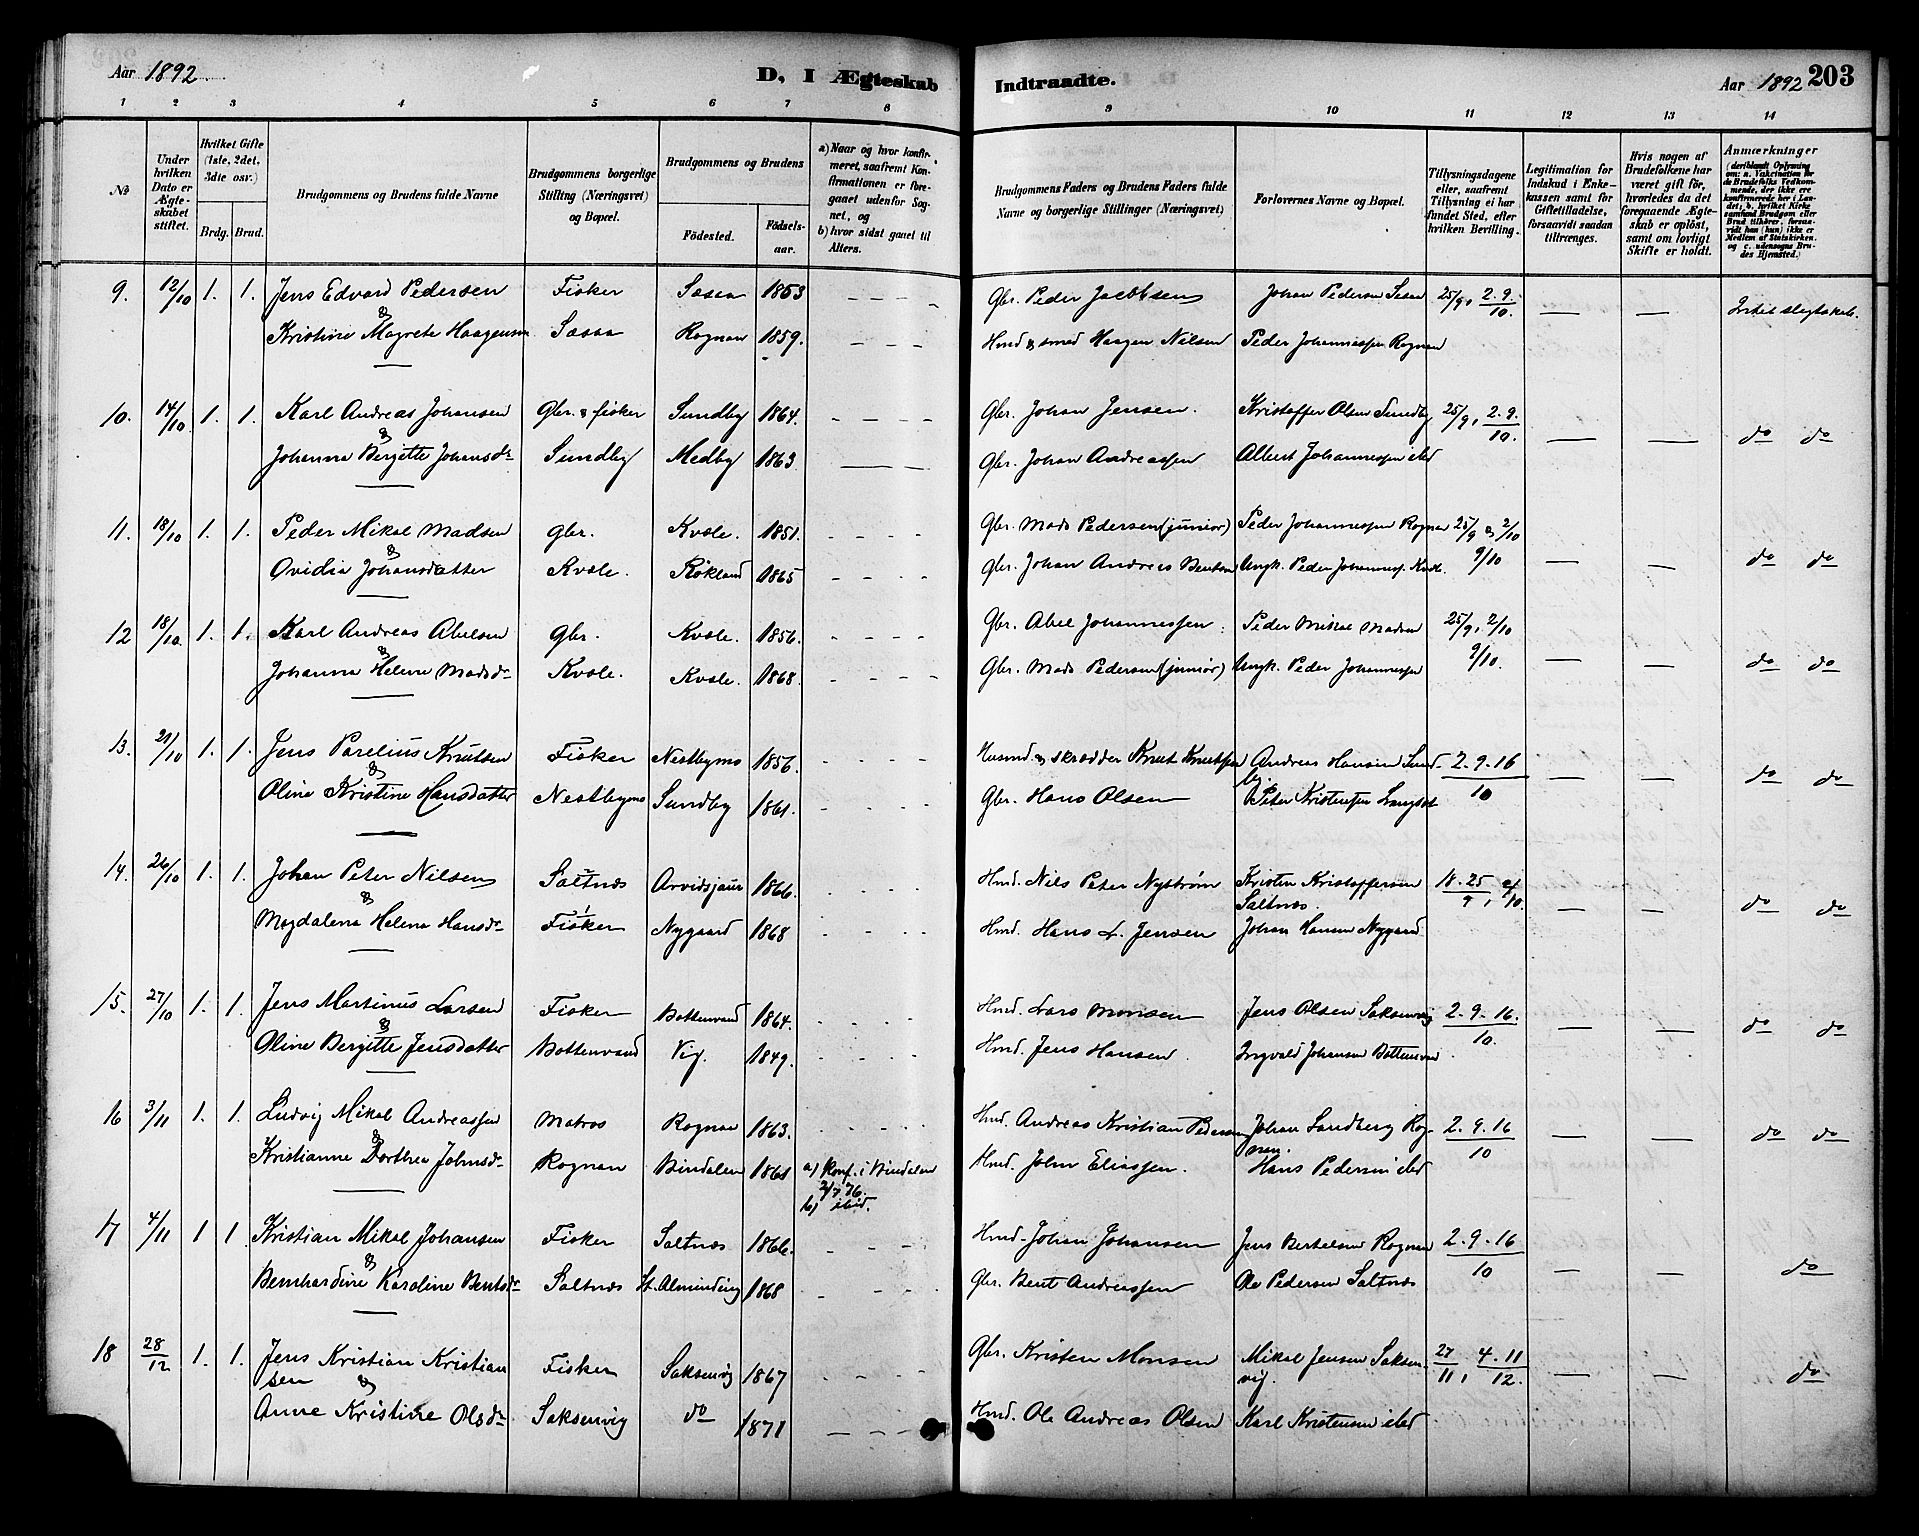 Aar 1892.
D, I Ægteskab
1 2 3 4 5 6 7 8
No
Under hvilken Dato er Ægteskabet stiftet.
Hvilket Gifte (1ste, 2det, 3die osv.)
Brdg. Brud.
Brudgommens og Brudens fulde Navne
Brudgommens borgerlige Stilling (Næringsvei) og Bopæl.
Brudgommens og Brudens
Fødested. Fødselsaar.
a) Naar og hvor konfirmeret, saafremt Konfirmationen er foregaaet udenfor Sognet, og
b) hvor sidst gaaet til Alters.
9. 12/10 1. 1. Jens Edvard Pedersen Fisker Saxa 1853 — — — —
& Kristine Magrete Haagensen Saxa Rognan 1859. — — —
10. 14/10 1. 1. Karl Andreas Johansen Gbr. & fisker Sundby 1864. — — — —
& Johanna Bergitte Johansdr Sundby Medby 1863.
11. 18/10 1. 1. Peder Mikal Madsen gbr. Kvæle. 1851.
& Ovidia Johansdatter Kvæle. Røkland 1865
12 18/10. 1. 1. Karl Andreas Abelsen gbr. Kvæle. 1856.
& Johanna Helene Madsdr Kvæle. Kvæle. 1868.
13. 21/10 1. 1. Jens Parelius Knutsen Fisker Nestbymo 1856.
& Oline Kristine Hansdatter Nestbymo Sundby 1861.
14. 26/10 1. 1. Johan Peter Nilsen Saltnæs Arvidsjaur 1866.
& Magdalena Helena Hansdr Fisker Nygaard 1868
15. 27/10 1. 1. Jens Martinus Larsen Fisker Bottenvand 1864.
& Oline Bergitte Jensdatter Bottenvand Vig. 1849.
16 3/11 1. 1. Ludvig Mikal Andreassen Matros Rognan 1863.
& Kristianne Dorthea Johnsdr Rognan Bindalen 1861 a) Konf. i Bindalen
2/7 76.
b) ibid.
17 4/11 1 1 Kristian Mikal Johansen Fisker Saltnæs 1866.
& Bernhardine Karoline Bentsdr Saltnæs St. Alminding 1868
18 28/12 1. 1. Jens Kristian Kristian
sen Fisker Saksenvig 1867
& Anne Kristine Olsdr Saksenvig do 1871
Indtraadte.
Aar 1892 203
9 10 11 12 13 14
Brudgommens Faders og Brudens Faders fulde Navne og borgerlige Stillinger (Næringsvei)
Forlovernes Navne og Bopæl.
Tillysningsdagene eller, saafremt Tillysning ei har fundet Sted, efter hvilken Bevilling.
Legitimation for Indskud i Enkekassen samt for Giftetilladelse, forsaavidt saadan tiltrænges.
Hvis nogen af Brudefolkene har været gift før, hvorledes da det foregaaende Ægteskab er opløst, samt om lovligt Skifte er holdt.
Anmærkninger
(deriblandt Oplysning om: a. Vakcination for de Brudefolks Vedkommende, der ikke ere konfirmerede her i Landet; b. hvilket Kirkesamfund Brudgom eller Brud tilhører, forsaavidt han (hun) ikke er Medlem af Statskirken, og c. udensogns Brudes Hjemsted.)
Gbr. Peder Jacobsen Johan Pedersen Saxa 25/9, 2.9./10. — — Intet slegtskab.
Hmd & smed Haagen Nilsen Peder Johannessen Rognan
Gbr. Johan Jensen. Kristoffer Olsen Sundby 25/9, 2.9./10. — — do do
Gbr. Johan Andreassen Albert Johannessen ibid
Gbr. Mads Pedersen (junior) Peder Johannessen Rognan 25/9 & 2/10
Gbr. Johan Andreas Bentsen Ungk. Peder Johanness. Kvæle. 9/10 — — do do
Gbr. Abel Johannessen. Peder Mikal Madsen 25/9, 2/10
Gbr. Mads Pedersen (junior) Ungk. Peder Johannessen 9/10. — — do do
Husmd & skrædder Knut Knutsen Andreas Hansen Sund- 2.9.16/10 — — do do
by.
Gbr. Hans Olsen Peter Kristensen Langset
Hmd. Nils Peter Nystrøm Kristen Kristoffersen 18.25/9, 2/10.
Saltnæs. — — do do
Hmd. Hans L. Jensen Johan Hansen Nygaard
Hmd. Lars Monsen Jens Olsen Saksenvig 2.9.16./10. — — do do
Hmd. Jens Hansen. Ingvald Johansen Bottenvand
Hmd. Andreas Kristian Pedersen Johan Sandberg Rog- 2.9.16/10 — — do do
nan.
Hmd. John Eliassen. Hans Pedersen ibid
Hmd. Johan Johansen Jens Bertelsen Rognan 2.9.16/10 — — do
Gbr. Bent Andreassen Ole Pedersen Saltnæs
Gbr. Kristen Monsen Mikal Jensen Saksen- 27/11, 4.11/12.
vig. — — do
Hmd. Ole Andreas Olsen Karl Kristensen ibid